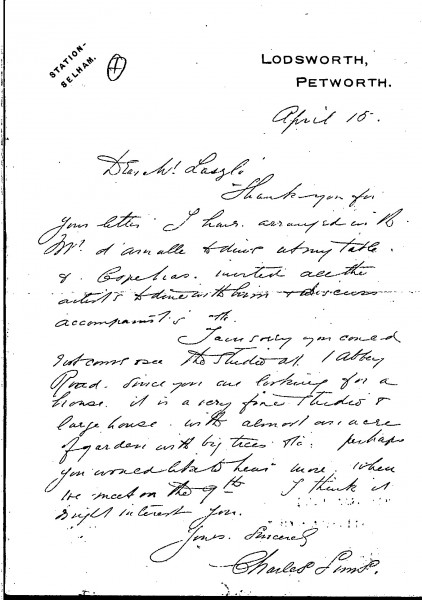 STATION-
SELHAM.
LODSWORTH,
PETWORTH.
April 15.
Dear Mr Laszlo
Thank you for
your letter I have arranged with
Mr d'Arnalle to dine at my table
& Cope has invited all the
artists to dine with him & discuss
accompanists etc.
I am sorry you could
not come see the studio at 1 Abbey
Road. Since you are looking for a
house. it is a very fine studio &
large house with almost an acre
of garden with big trees etc. perhaps
you would like to hear more when
we meet on the 9th I think it
might interest you.
Yours Sincerely
Charles Sims.